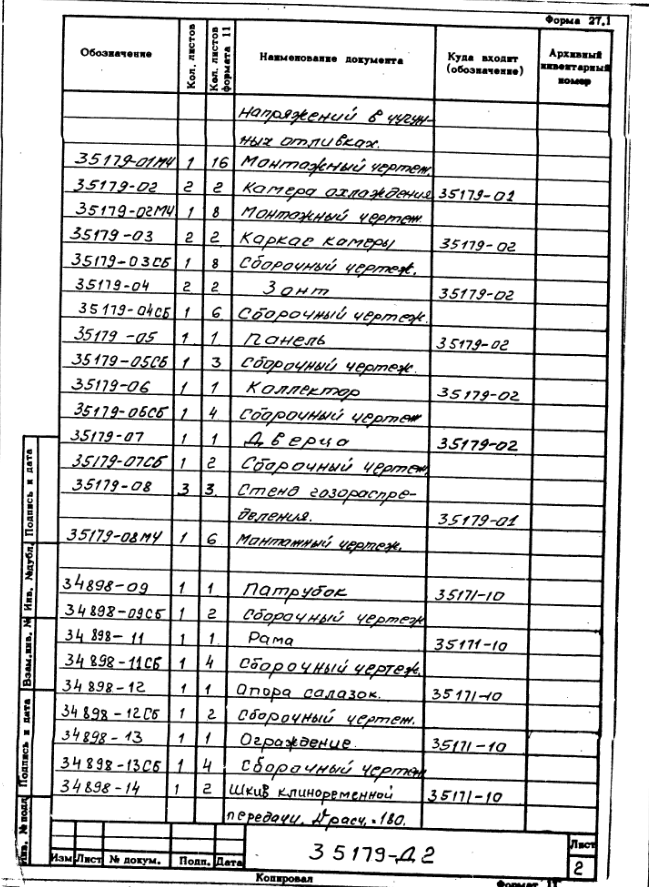 Форма 27.1
Обозначение Кол. листов Кол. листов формата 11 Наименование документа Куда входит (обозначение) Архивный инвентарный номер
напряжений в чугун-
ных отливках.
35179-01МЧ 1 16 Монтажный чертеж.
35179-02 2 2 Камера охлаждения 35179-01
35179-02МЧ 1 8 Монтажный чертеж.
35179-03 2 2 Каркас камеры 35179-02
35179-03СБ 1 8 Сборочный чертеж.
35179-04 2 2 Зонт 35179-02
35179-04СБ 1 6 Сборочный чертеж.
35179-05 1 1 Панель 35179-02
35179-05СБ 1 3 Сборочный чертеж.
35179-06 1 1 Коллектор 35179-02
35179-06СБ 1 4 Сборочный чертеж
35179-07 1 1 Дверца 35179-02
35179-07СБ 1 2 Сборочный чертеж.
35179-08 3 3 Стенд газораспре-
деления. 35179-01
35179-08МЧ 1 6 Монтажный чертеж.
34898-09 1 1 Патрубок 35171-10
34898-09СБ 1 2 Сборочный чертеж
34898-11 1 1 Рама 35171-10
34898-11СБ 1 4 Сборочный чертеж.
34898-12 1 1 Опора салазок. 35171-10
34898-12СБ 1 2 Сборочный чертеж.
34898-13 1 1 Ограждение. 35171-10
34898-13СБ 1 4 Сборочный чертеж
34898-14 1 2 Шкив клиноременной 35171-10
передачи. Драсч.=180.
Инв. № подл. Подпись и дата Взам.инв. № Инв. №дубл. Подпись и дата
35179-Д2
Лист
2
Изм Лист № докум. Подп. Дата
Копировал Формат 11